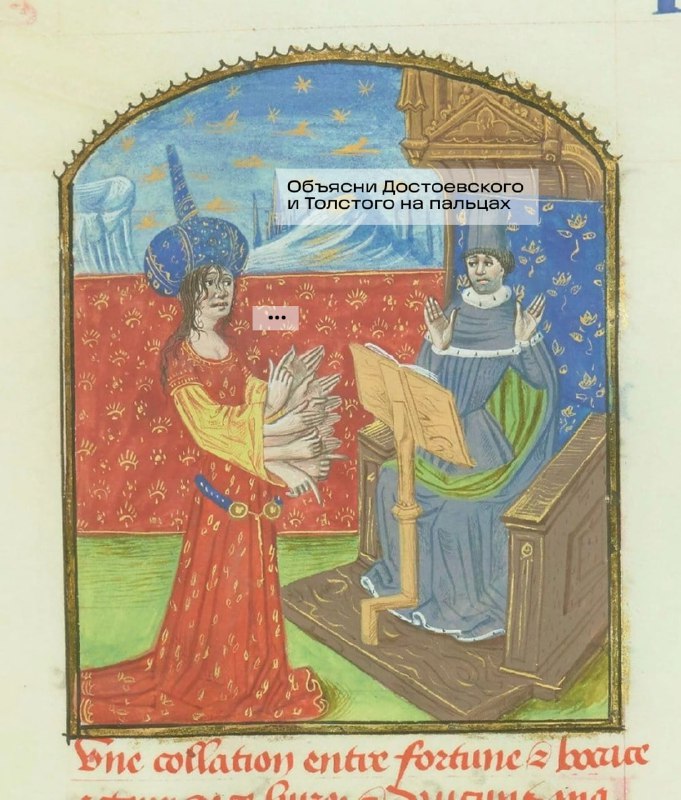 Объясни Достоевского
и Толстого на пальцах
...
Une collation entre fortune & bocace